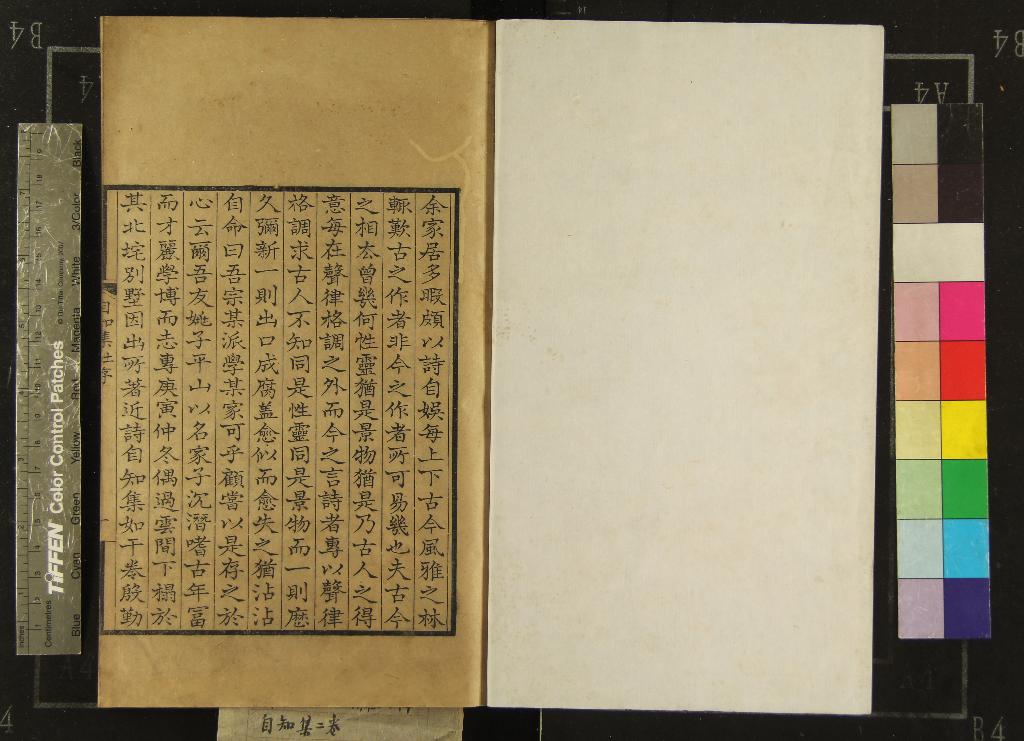 余家居多暇頗以詩自娛每上下古今風雅之林
輒歎古之作者非今之作者所可易幾也夫古今
之相去曾幾何性靈猶是景物猶是乃古人之得
意每在聲律格調之外而今之言詩者專以聲律
格調求古人不知同是性靈同是景物而一則歷
久彌新一則出口成腐蓋愈似而愈失之猶沾沾
自命曰吾宗某派學某家可乎顧嘗以是存之於
心云爾吾友姚子平山以名家子沉潛嗜古年富
而才麗學博而志專庚寅仲冬偶過雲間下榻於
其北垞別墅因出所著近詩自知集如干卷殷勤
自知集
自知集二卷
TIFFEN Color Control Patches
© The Tiffen Company, 2007
Centimetres
Inches
Blue
Cyan
Green
Yellow
Red
Magenta
White
3/Color
Black
B4
A4
B4
A4
B4